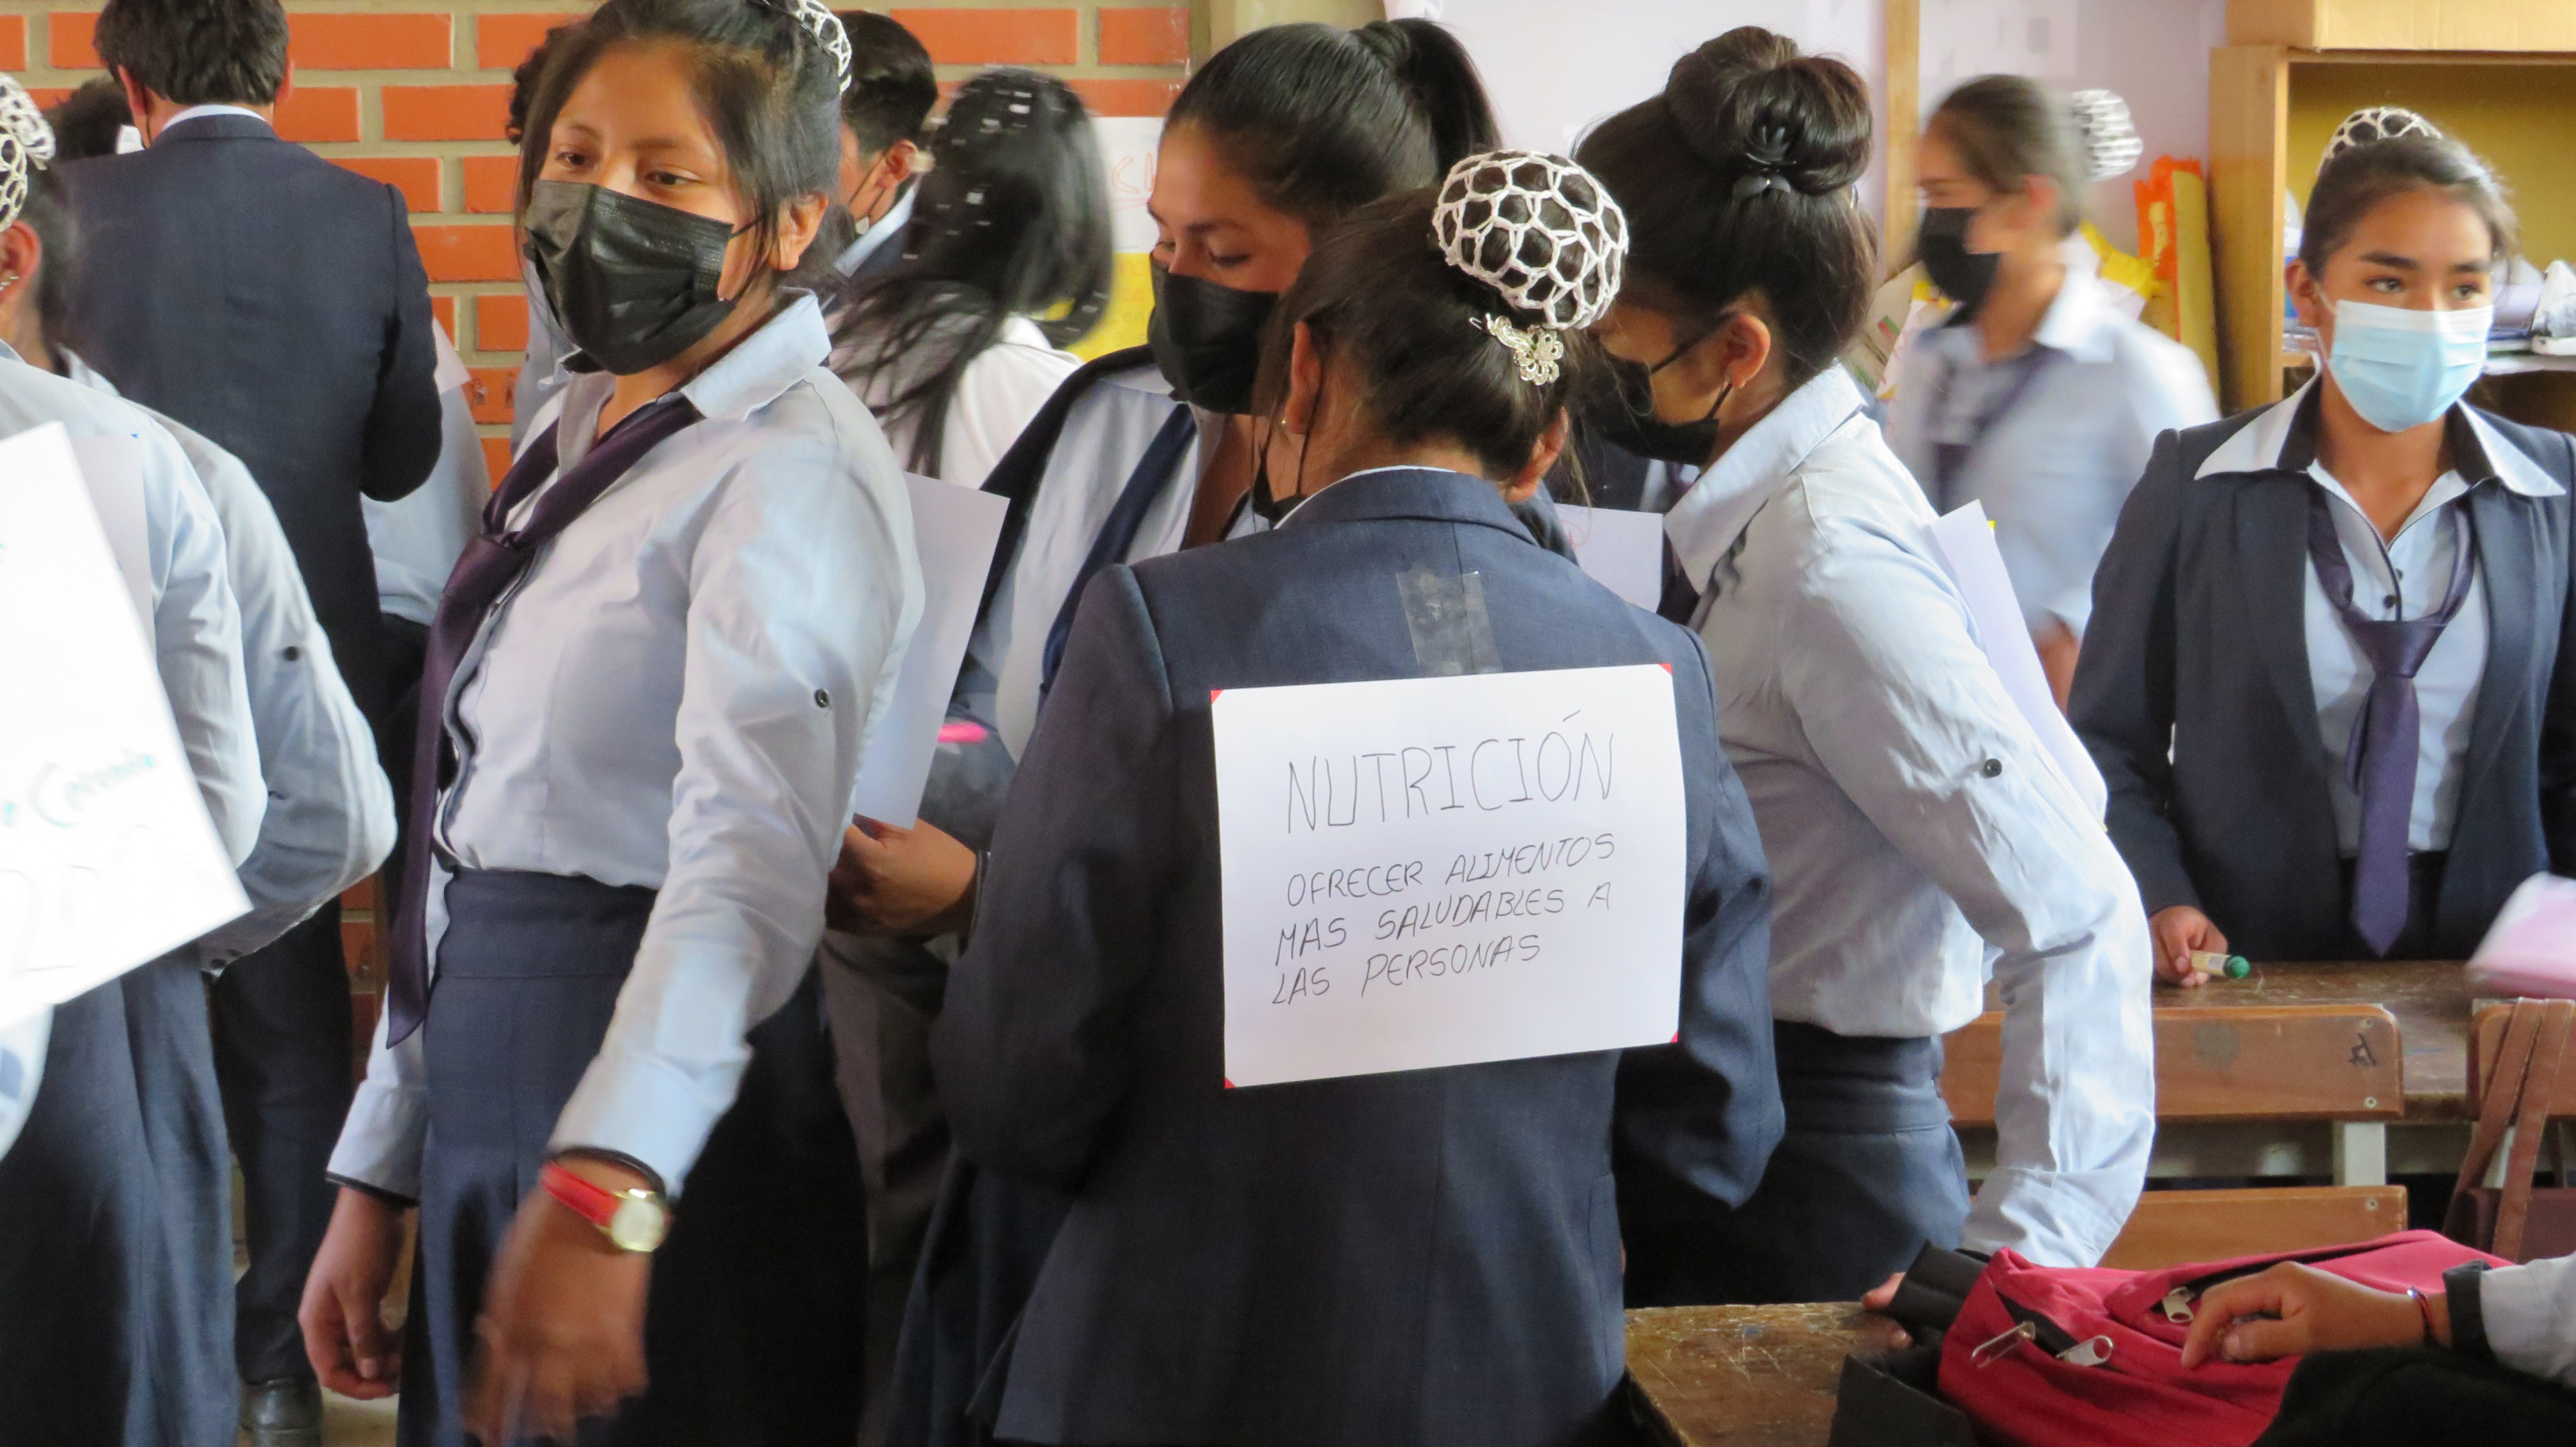 NUTRICIÓN
OFRECER ALIMENTOS
MAS SALUDABLES A
LAS PERSONAS